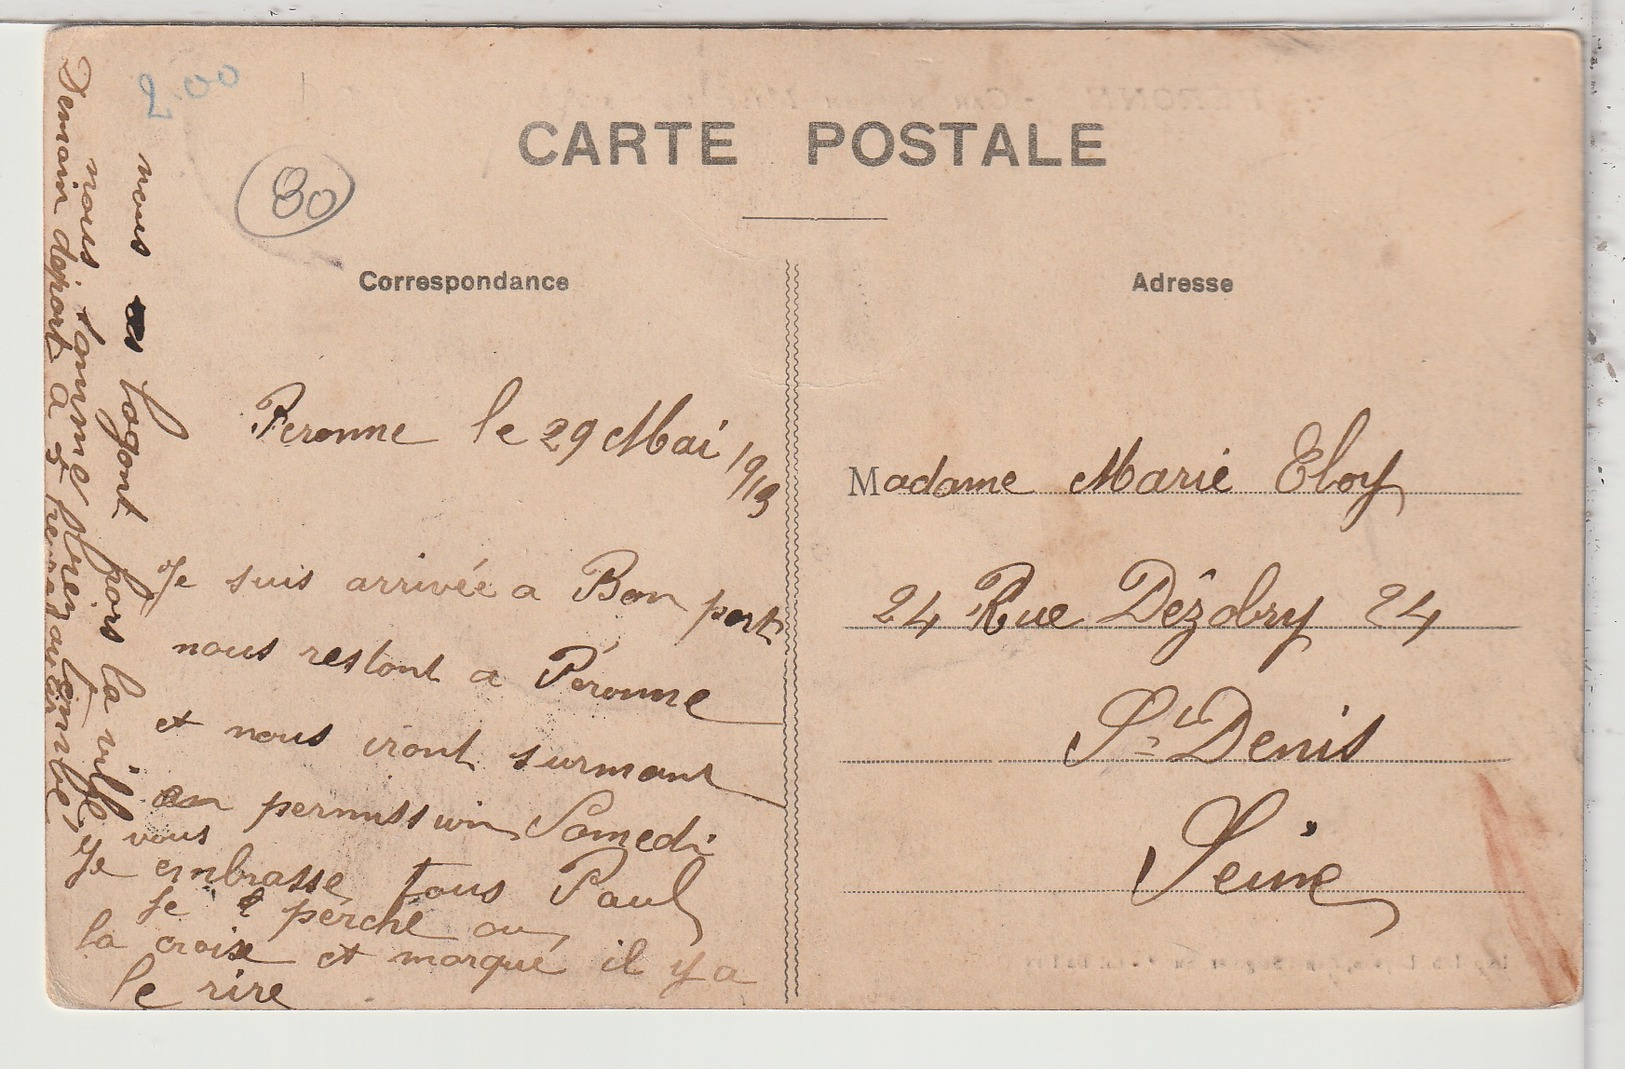 2.00
80
CARTE POSTALE
Correspondance
Adresse
Peronne le 29 Mai 1913
Je suis arrivée a Bon port
nous restont a Péronne
et nous iront surmant
en permission Samedi
Je vous
embrasse tous Paul
Je perche ou
la croix et marque il y a
le rire
nous logont hors la ville
nous somme bien tombé
Demain départ a 5 heures
Madame Marie Eloy
24 Rue Dézobry 24
St Denis
Seine